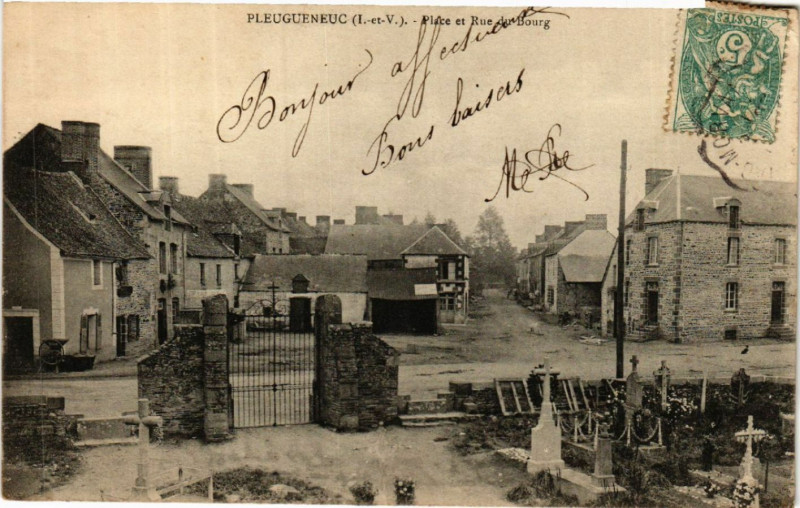 PLEUGUENEUC (I.-et-V.). - Place et Rue du Bourg
Bonjour affectueux
Bons baisers
POSTES